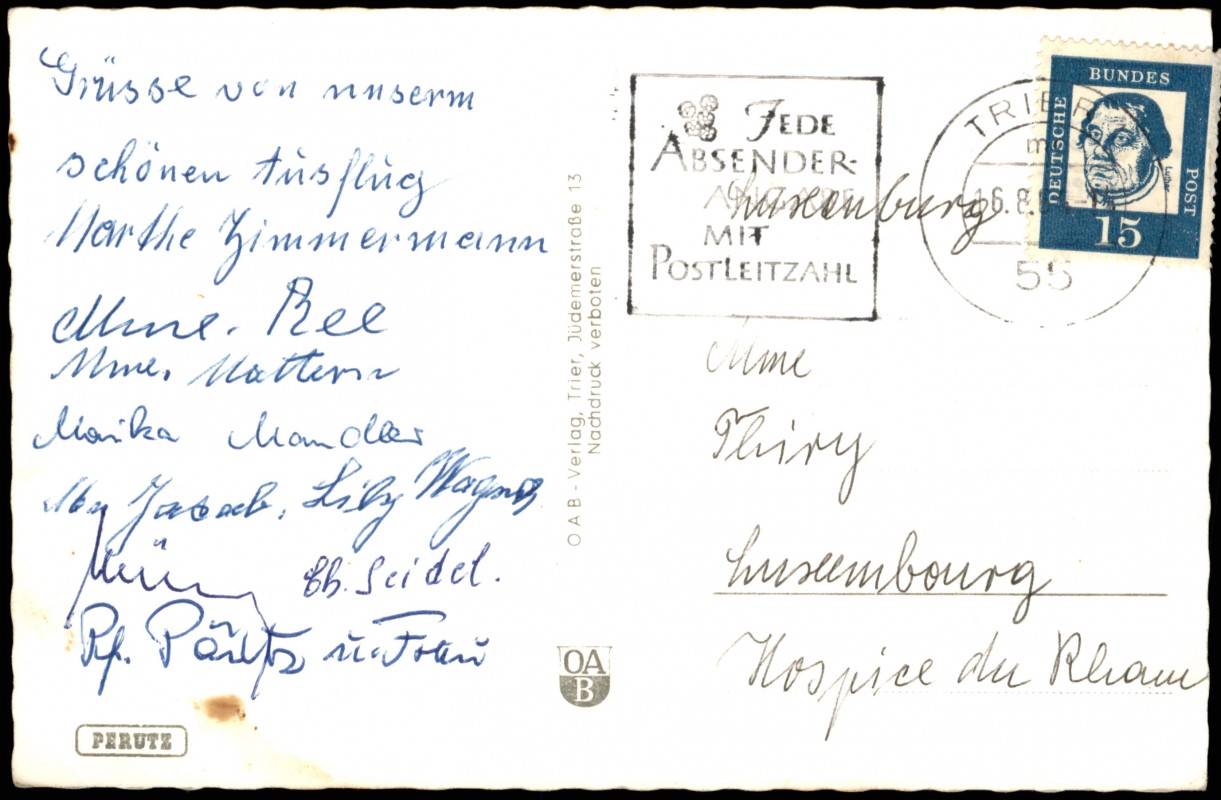 Grüsse von unserm
schönen Ausflug
Marthe Zimmermann
Mme. Bee
Mme. Mattern
Marika Mander
Jacob, Lily Wagner
Ch. Seidel.
u. Frau
PERUTZ
OAB - Verlag, Trier, Jüdemerstraße 13
Nachdruck verboten
OA
B
JEDE
ABSENDER-
ANGABE
MIT
POSTLEITZAHL
TRIER
16.8.
55
BUNDES
DEUTSCHE
POST
Luther
15
Luxemburg
Mme
Thiry
Luxembourg
Hospice du Rham